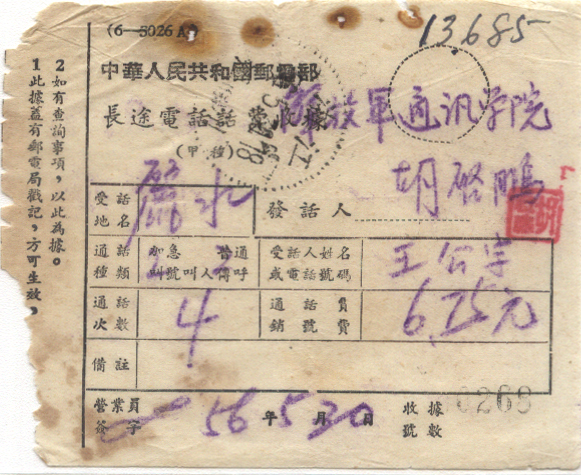 (6—5026A)
13685
中華人民共和國郵電部
長途電話話費收據
(甲種)
解放軍通訊学院
胡啓鵬
受話地名
麗水
發話人
通話種類
加急 普通
叫號 叫人 傳呼
受話人姓名或電話號碼
王公宇
通話次數
4
通話銷號費
6.25元
備註
營業員簽字
56年5月30日
收據號數
0268
2如有查詢事項，以此為據。
1此據蓋有郵電局戳記，方可生效，